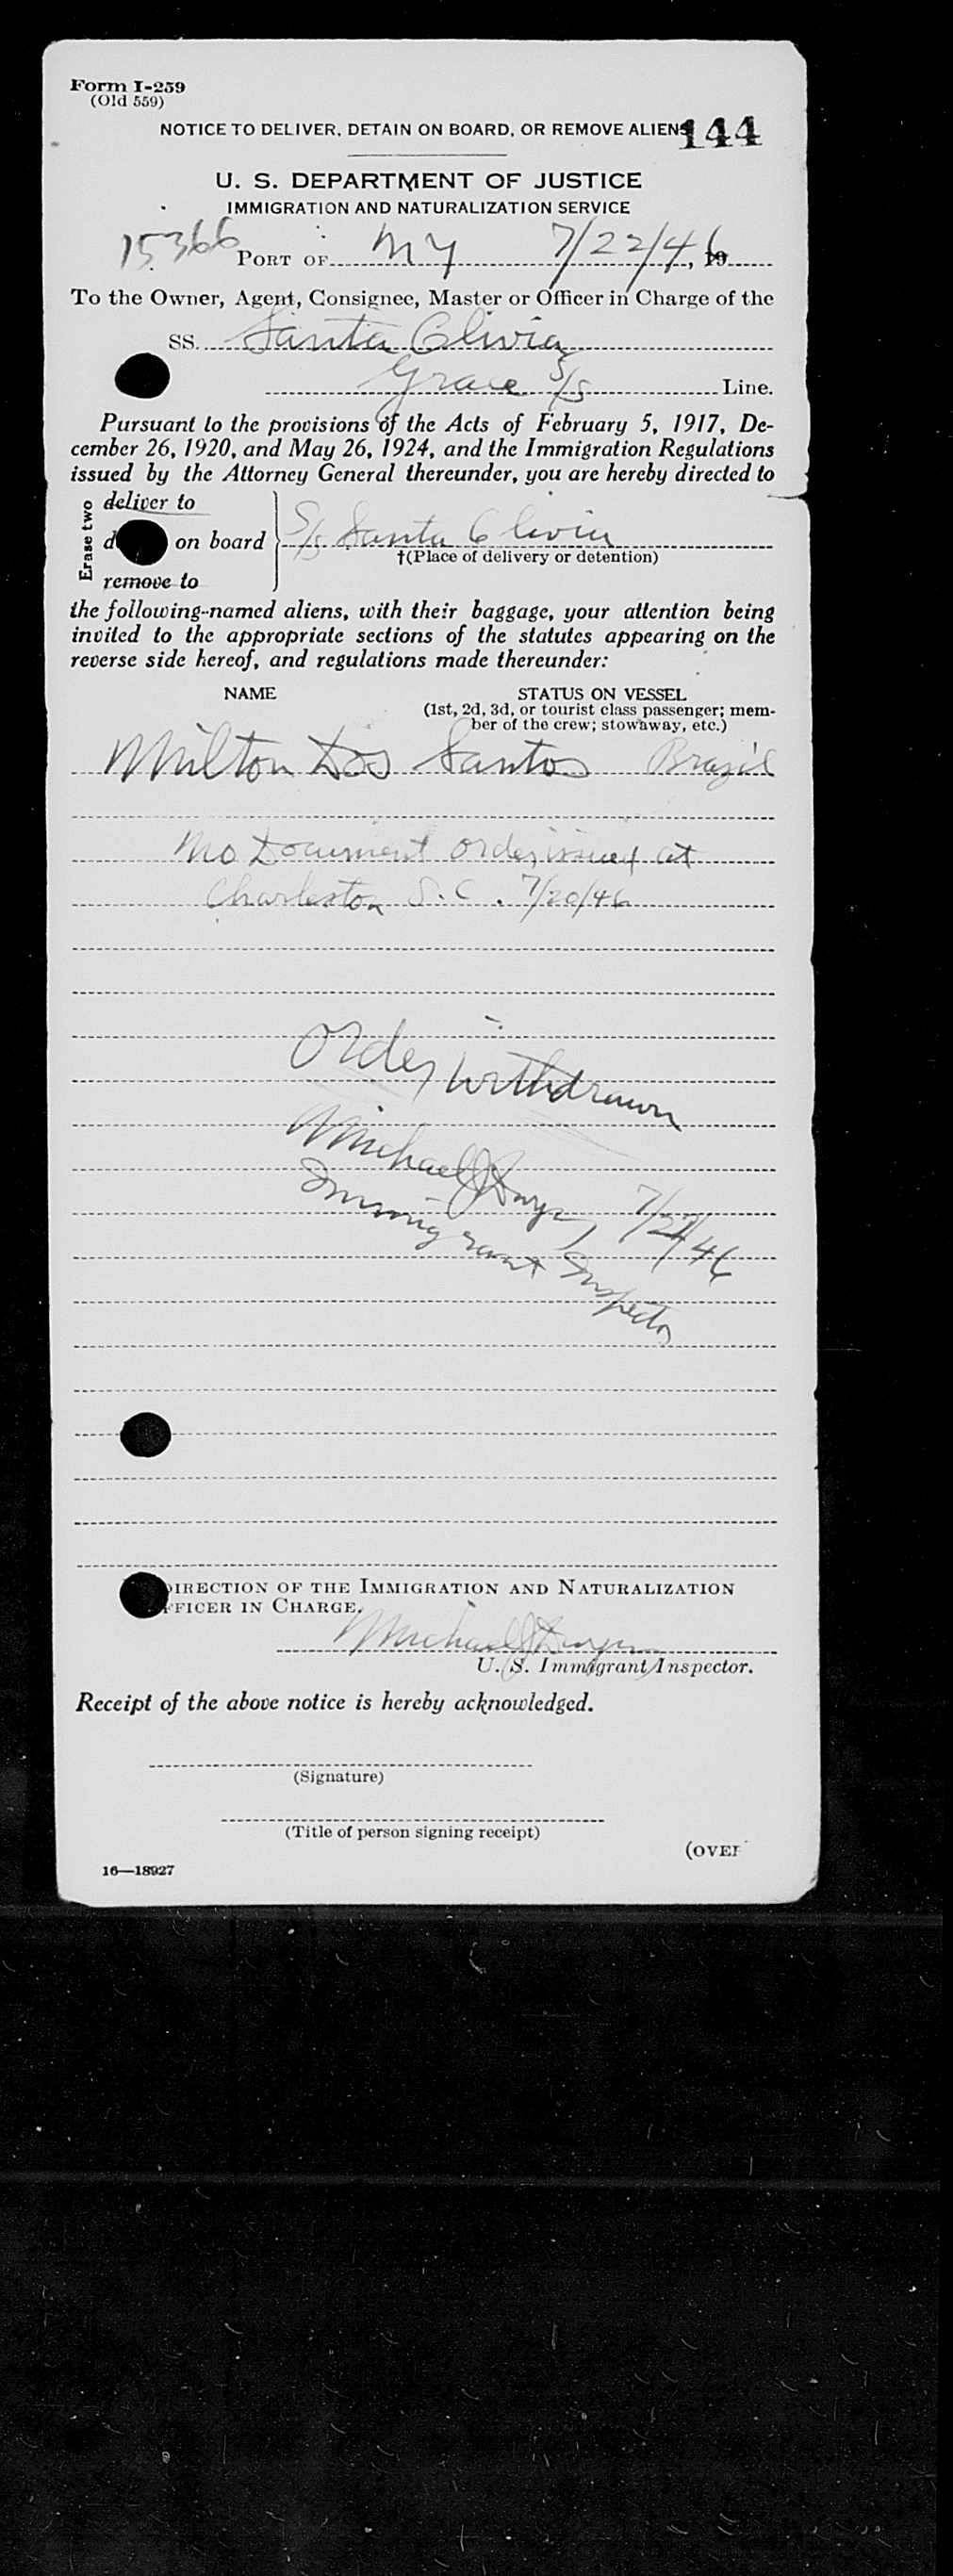 Form I-259
(Old 559)
NOTICE TO DELIVER, DETAIN ON BOARD, OR REMOVE ALIENS
144
U. S. DEPARTMENT OF JUSTICE
IMMIGRATION AND NATURALIZATION SERVICE
15366 PORT OF NY 7/22/46, 19
To the Owner, Agent, Consignee, Master or Officer in Charge of the
SS. Santa Olivia
Grace S/S Line.
Pursuant to the provisions of the Acts of February 5, 1917, De-
cember 26, 1920, and May 26, 1924, and the Immigration Regulations
issued by the Attorney General thereunder, you are hereby directed to
Erase two
deliver to
on board
remove to
S/S Santa Olivia
†(Place of delivery or detention)
the following-named aliens, with their baggage, your attention being
invited to the appropriate sections of the statutes appearing on the
reverse side hereof, and regulations made thereunder:
NAME STATUS ON VESSEL
(1st, 2d, 3d, or tourist class passenger; mem-
ber of the crew; stowaway, etc.)
Milton Dos Santos Brazil
No Document order issued at
Charleston S.C. 7/20/46
Order withdrawn
Michael J
7/ /46
Immigrant Inspector
DIRECTION OF THE IMMIGRATION AND NATURALIZATION
OFFICER IN CHARGE.
Michael J
U. S. Immigrant Inspector.
Receipt of the above notice is hereby acknowledged.
(Signature)
(Title of person signing receipt)
(OVER
16—18927